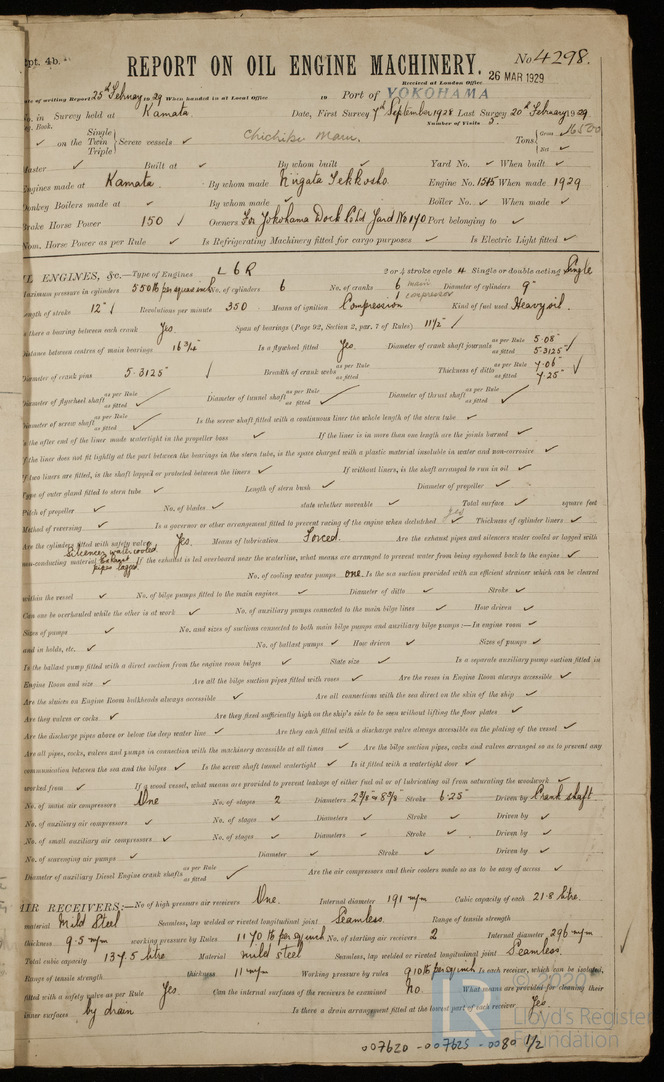 Rpt. 4b.
REPORT ON OIL ENGINE MACHINERY.
No 4298.
Received at London Office 26 MAR 1929
Date of writing Report 25th Febuary 1929 When handed in at Local Office 19 Port of YOKOHAMA
No. in Survey held at Kamata Date, First Survey 7th September 1928 Last Survey 20th Febuary 1929
Reg. Book. Number of Visits 5.
✓ on the Single Twin Triple Screw vessels ✓ Chichibu Maru. Tons Gross 16500 Net ✓
Master ✓ Built at ✓ By whom built ✓ Yard No. ✓ When built ✓
Engines made at Kamata By whom made Niigata Tekkosho Engine No. 1515 When made 1929
Donkey Boilers made at ✓ By whom made ✓ Boiler No. ✓ When made ✓
Brake Horse Power 150 ✓ Owners For Yokohama Dock Co Ltd Yard No 170 Port belonging to ✓
Nom. Horse Power as per Rule ✓ Is Refrigerating Machinery fitted for cargo purposes ✓ Is Electric Light fitted ✓
OIL ENGINES, &c.—Type of Engines L6R 2 or 4 stroke cycle 4 Single or double acting Single
Maximum pressure in cylinders 550 lb per square inch No. of cylinders 6 No. of cranks 6 main 1 compressor Diameter of cylinders 9"
Length of stroke 12" ✓ Revolutions per minute 350 Means of ignition Compression Kind of fuel used Heavy oil.
Is there a bearing between each crank Yes. Span of bearings (Page 92, Section 2, par. 7 of Rules) 11 1/2" ✓
Distance between centres of main bearings 16 3/4" Is a flywheel fitted Yes. Diameter of crank shaft journals as per Rule 5.08" as fitted 5.3125" ✓
Diameter of crank pins 5.3125" ✓ Breadth of crank webs as per Rule as fitted Thickness of ditto as per Rule 7.06" as fitted 7.25" ✓
Diameter of flywheel shaft as per Rule as fitted ✓ Diameter of tunnel shaft as per Rule as fitted ✓ Diameter of thrust shaft as per Rule as fitted ✓
Diameter of screw shaft as per Rule as fitted ✓ Is the screw shaft fitted with a continuous liner the whole length of the stern tube ✓
Is the after end of the liner made watertight in the propeller boss ✓ If the liner is in more than one length are the joints burned ✓
If the liner does not fit tightly at the part between the bearings in the stern tube, is the space charged with a plastic material insoluble in water and non-corrosive ✓
If two liners are fitted, is the shaft lapped or protected between the liners ✓ If without liners, is the shaft arranged to run in oil ✓
Type of outer gland fitted to stern tube ✓ Length of stern bush ✓ Diameter of propeller ✓
Pitch of propeller ✓ No. of blades ✓ state whether moveable ✓ Total surface ✓ square feet
Method of reversing ✓ Is a governor or other arrangement fitted to prevent racing of the engine when declutched yes ✓ Thickness of cylinder liners ✓
Are the cylinders fitted with safety valves Yes. Means of lubrication Forced. Are the exhaust pipes and silencers water cooled or lagged with
non-conducting material Silencer water cooled Exhaust pipes lagged. If the exhaust is led overboard near the waterline, what means are arranged to prevent water from being syphoned back to the engine ✓
No. of cooling water pumps one. Is the sea suction provided with an efficient strainer which can be cleared
within the vessel ✓ No. of bilge pumps fitted to the main engines ✓ Diameter of ditto ✓ Stroke ✓
Can one be overhauled while the other is at work ✓ No. of auxiliary pumps connected to the main bilge lines ✓ How driven ✓
Sizes of pumps ✓ No. and sizes of suctions connected to both main bilge pumps and auxiliary bilge pumps:—In engine room ✓
and in holds, etc. ✓ No. of ballast pumps ✓ How driven ✓ Sizes of pumps ✓
Is the ballast pump fitted with a direct suction from the engine room bilges ✓ State size ✓ Is a separate auxiliary pump suction fitted in
Engine Room and size ✓ Are all the bilge suction pipes fitted with roses ✓ Are the roses in Engine Room always accessible ✓
Are the sluices on Engine Room bulkheads always accessible ✓ Are all connections with the sea direct on the skin of the ship ✓
Are they valves or cocks ✓ Are they fixed sufficiently high on the ship's side to be seen without lifting the floor plates ✓
Are the discharge pipes above or below the deep water line ✓ Are they each fitted with a discharge valve always accessible on the plating of the vessel ✓
Are all pipes, cocks, valves and pumps in connection with the machinery accessible at all times ✓ Are the bilge suction pipes, cocks and valves arranged so as to prevent any
communication between the sea and the bilges ✓ Is the screw shaft tunnel watertight ✓ Is it fitted with a watertight door ✓
worked from ✓ If a wood vessel, what means are provided to prevent leakage of either fuel oil or of lubricating oil from saturating the woodwork ✓
No. of main air compressors One No. of stages 2 Diameters 2 5/8" & 8 5/8" Stroke 6.25" Driven by Crank shaft
No. of auxiliary air compressors ✓ No. of stages ✓ Diameters ✓ Stroke ✓ Driven by ✓
No. of small auxiliary air compressors ✓ No. of stages ✓ Diameters ✓ Stroke ✓ Driven by ✓
No. of scavenging air pumps ✓ Diameter ✓ Stroke ✓ Driven by ✓
Diameter of auxiliary Diesel Engine crank shafts as per Rule as fitted ✓ Are the air compressors and their coolers made so as to be easy of access ✓
AIR RECEIVERS:—No of high pressure air receivers One. Internal diameter 191 m/m Cubic capacity of each 21.8 litre.
material Mild Steel Seamless, lap welded or riveted longitudinal joint Seamless. Range of tensile strength
thickness 9.5 m/m working pressure by Rules 1170 lb per sq inch No. of starting air receivers 2 Internal diameter 296 m/m
Total cubic capacity 137.5 litre Material mild steel Seamless, lap welded or riveted longitudinal joint Seamless.
Range of tensile strength thickness 11 m/m Working pressure by rules 910 lb per sq inch Is each receiver, which can be isolated,
fitted with a safety valve as per Rule Yes. Can the internal surfaces of the receivers be examined No. What means are provided for cleaning their
inner surfaces by drain Is there a drain arrangement fitted at the lowest part of each receiver Yes.
© 2020
Lloyd's Register
Foundation
007620 - 007625 - 0080 1/2